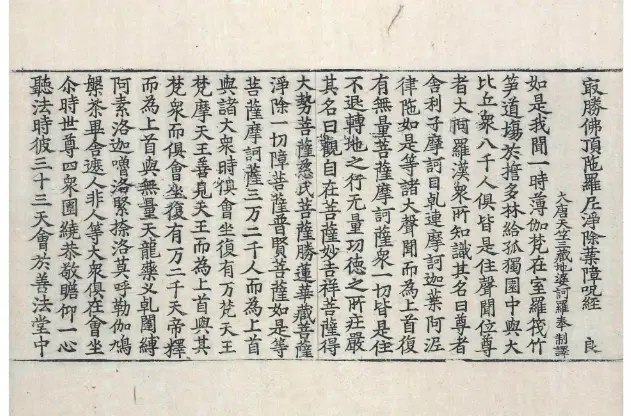 最勝佛頂陁羅尼淨除業障呪經　良
大唐天竺三藏地婆訶羅奉　制譯
如是我聞一時薄伽梵在室羅筏竹
笋道場於揥多林給孤獨園中與大
比丘衆八千人俱皆是住聲聞位尊
者大阿羅漢衆所知識其名曰尊者
舍利子摩訶目乹連摩訶迦葉阿泥
律陁如是等諸大聲聞而為上首復
有無量菩薩摩訶薩衆一切皆是住
不退轉地之行无量功德之所莊嚴
其名曰觀自在菩薩妙吉祥菩薩得
大勢菩薩慈氏菩薩勝蓮華藏菩薩
淨除一切障菩薩普賢菩薩如是等
菩薩摩訶薩三万二千人而為上首
與諸大衆時俱會坐復有万梵天王
梵摩天王善見天王而為上首與其
梵衆而俱會坐復有万二千天帝釋
而為上首與無量天龍藥叉乹闥縛
阿素洛迦嚕洛緊捺洛莫呼勒伽鳩
槃茶畢舍遮人非人等大衆俱在會坐
尒時世尊四衆圍繞恭敬瞻仰一心
聽法時彼三十三天會於善法堂中